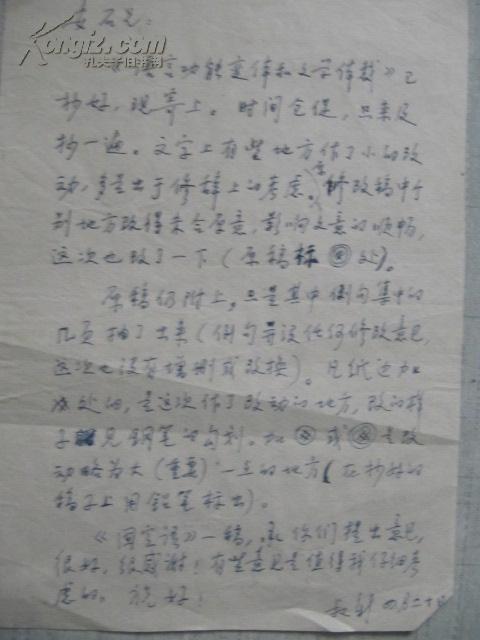 安石兄：
《语言功能变体和文学体裁》已
抄好，现寄上。时间仓促，只来及
抄一遍。文字上有些地方作了小的改
动，多是出于修辞上的考虑。修改稿中个
别地方改得未合原意，影响文意的顺畅，
这次也改了一下（原稿标◎处）。
原稿仍附上，只是其中例句集中的
几页抽了出来（例句等没任何修改意见，
这次也没有增删或改换）。凡纸边加
处的，是这次作了改动的地方，改的样
子见钢笔的勾划。加 或 是改
动略为大（重要）一点的地方（在抄好的
稿子上用铅笔标出）。
《闻言语》一稿，承你们提出意见，
很好，很感谢！有些意见是值得我仔细考
虑的。祝好！
四月二十日
孔夫子旧书网